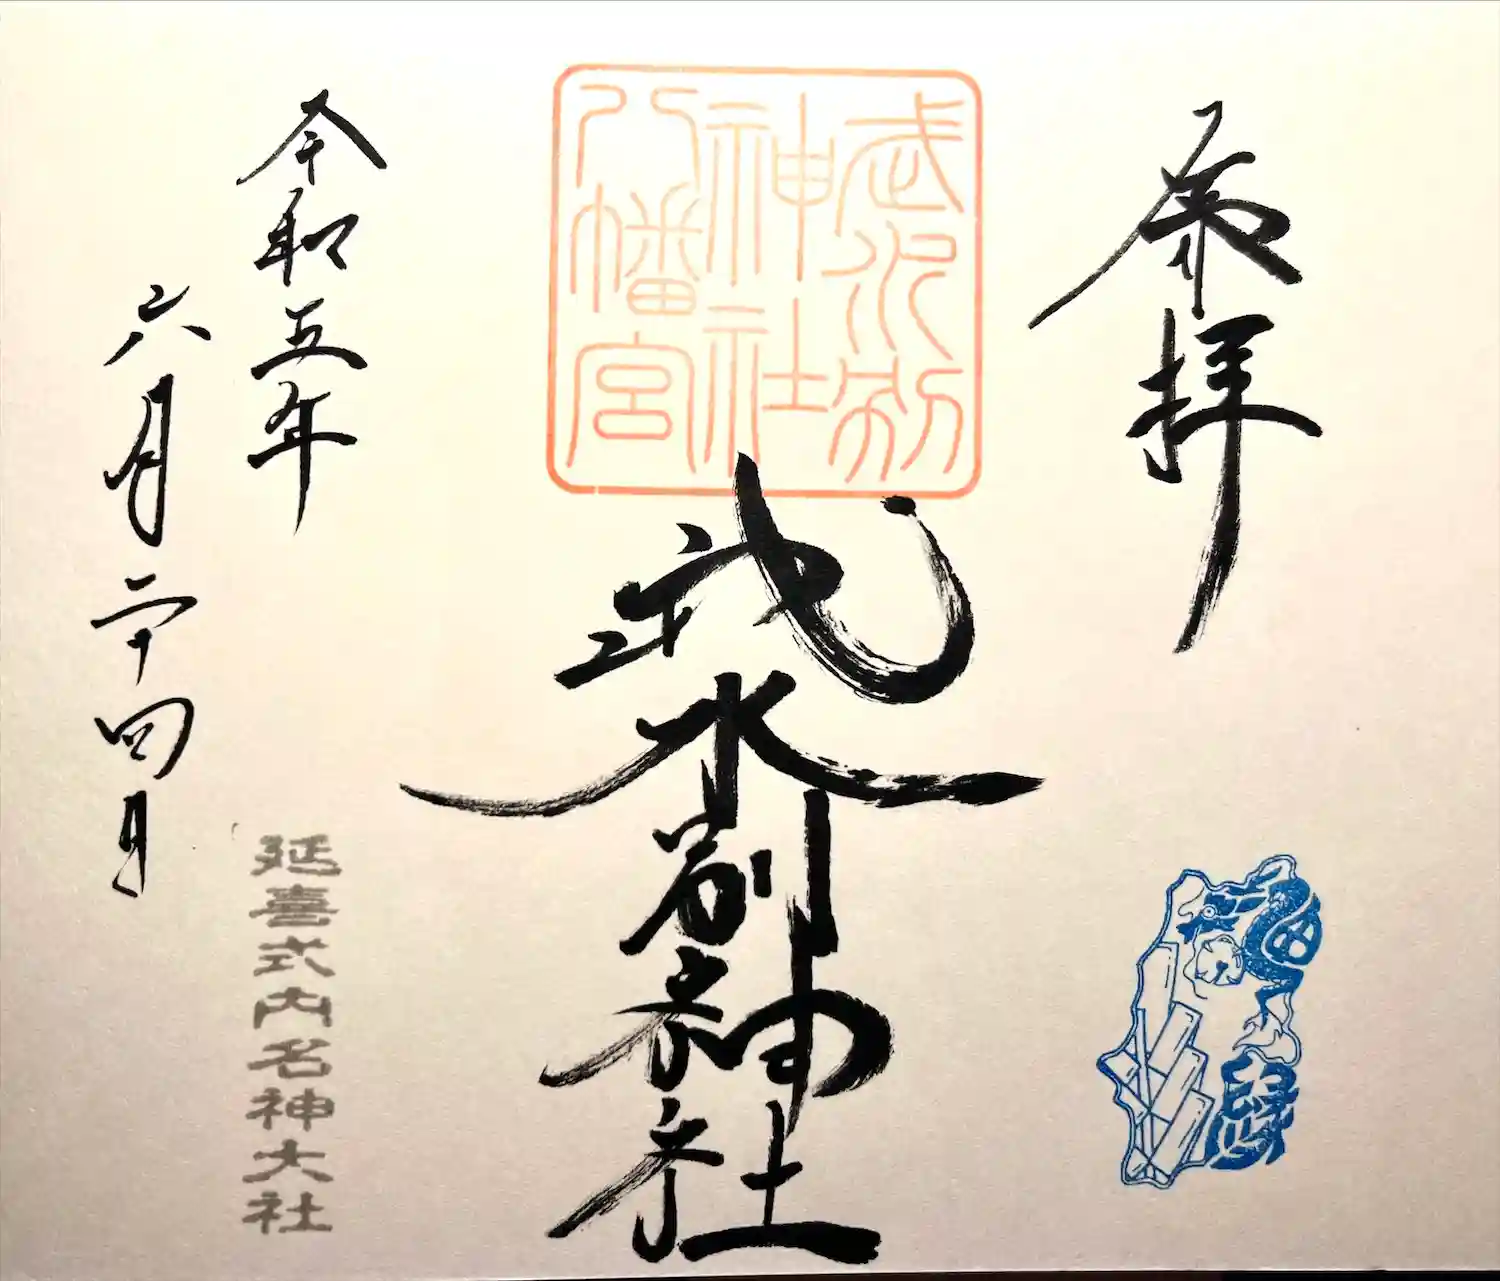 奉拝
武水別
神社
八幡宮
武水別神社
令和五年
六月二十四日
延喜式内名神大社